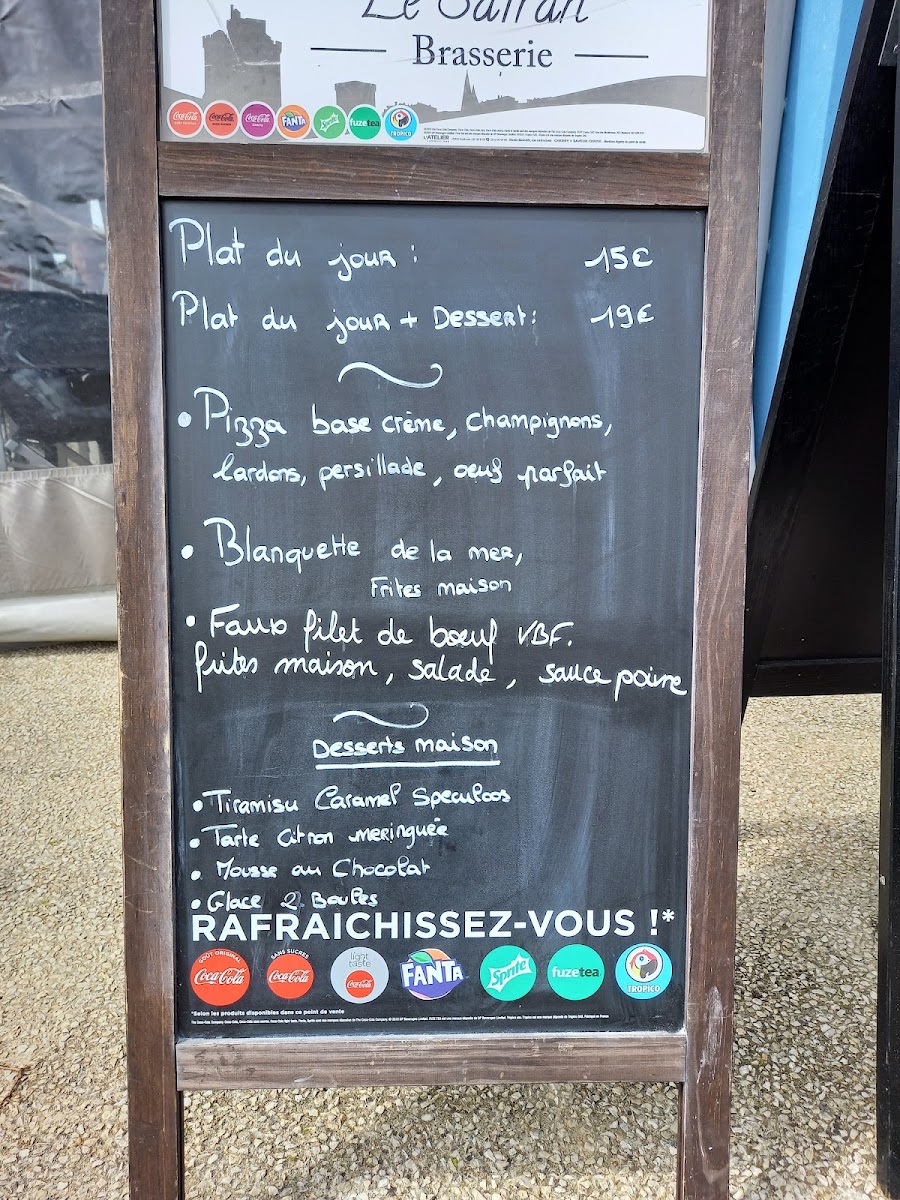 Le Safran
Brasserie
Coca-Cola Coca-Cola Coca-Cola FANTA Sprite fuzetea TROPICO
L'ATELIER
Plat du jour : 15€
Plat du jour + Dessert : 19€
• Pizza base crème, champignons,
lardons, persillade, oeuf parfait
• Blanquette de la mer,
Frites maison
• Faux filet de boeuf VBF.
frites maison, salade, sauce poivre
Desserts maison
• Tiramisu Caramel Speculoos
• Tarte Citron meringuée
• Mousse au Chocolat
• Glace 2 Boules
RAFRAICHISSEZ-VOUS !*
GOÛT ORIGINAL SANS SUCRES light taste
Coca-Cola Coca-Cola Coca-Cola FANTA Sprite fuzetea TROPICO
*Selon les produits disponibles dans ce point de vente